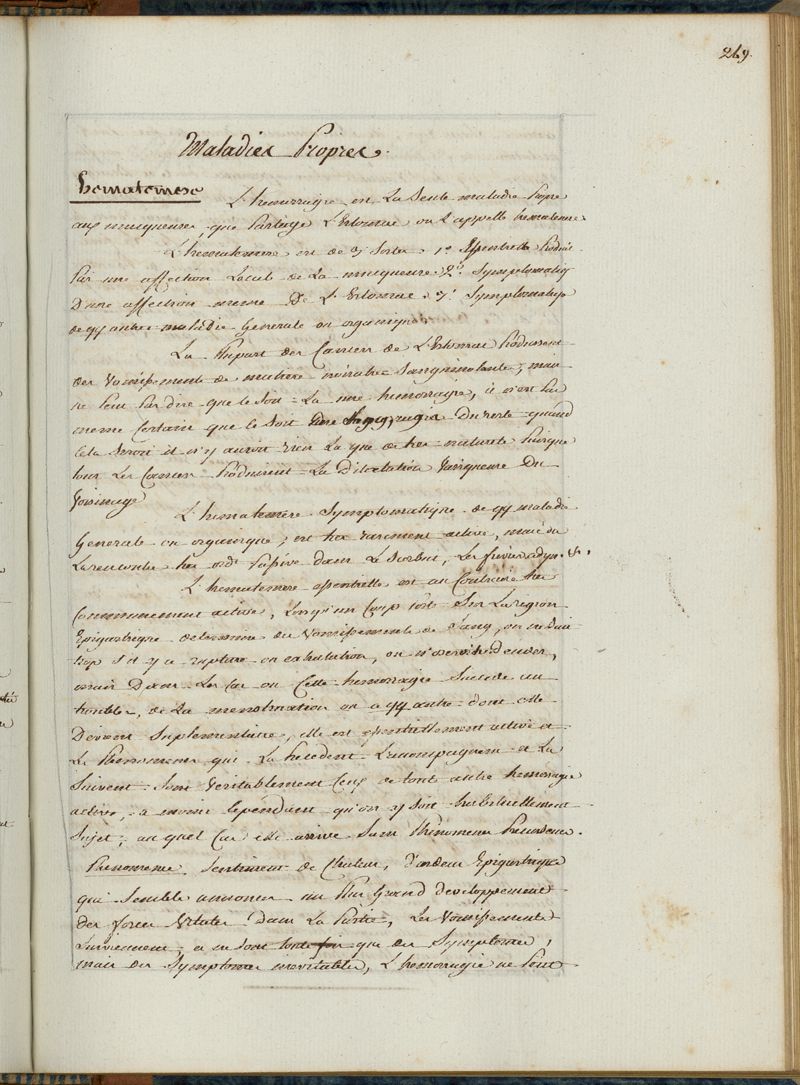 249.
Maladies Propres.
hematemese
L'hemorragie est La Seule maladie Propre
aux muqueuses, que Partage L'Estomac on L'appelle hematemese.
L'hematemese est de 3 Sortes 1° Essentielle Produite
Par une affection Locale de La muqueuse. 2° Symptomatiq
D'une affection meme De L'Estomac. 3° Symptomatiq
de qq autre maladie Generale ou organique
La Plupart des Cancers de L'Estomac Produisent
des Vomissements de matiere noiratre Sanguinolente, mais
ne Peut Pas dire que ce Soit La une hemorragie, il n'est Pas
meme Certain que ce Soit Du reste quand
Cela Seroit il n'y auroit rien La que de tres naturel Puisque
tous Les Cancers Produisent La Dilatation Variqueuse Du
Voisinage
L'hematemese Symptomatique de qq maladie
Generale ou organique, est tres rarement active, mais on
La rencontre tres ord. Passive dans Le Scorbut, Les fievres adyn. &.
L'hematemese essentielle est au Contraire tres
Communement active, Lorsqu'un Coup Porté Sur La region
Epigastrique determine des Vomissements de Sang, on ne Sait
trop S'il y a rupture ou exhalation, on n'oseroit decider,
mais Dans Les Cas ou Cette hemorragie Succede aux
troubles de La menstruation ou a qq autre dont elle
Devient Suplementaire, elle est essentiellement active et
Les Phenomenes qui La Precedent L'accompagnent et La
Suivent Sont Veritablement Ceux de toute autre hemorragie
active, a moins Cependant qu'on y Soit habituellement
Sujet, au quel Cas elle arrive Sans Phenomenes Precurseurs.
Phenomenes. Sentiment de Chaleur, d'ardeur Epigastrique
qui Semble annoncer un Plus Grand developpement
des forces Vitales Dans La Partie, Les Vomissements
Surviennent, et ne Sont que des Symptomes,
mais des Symptomes inevitables, L'hemorragie ne Peut